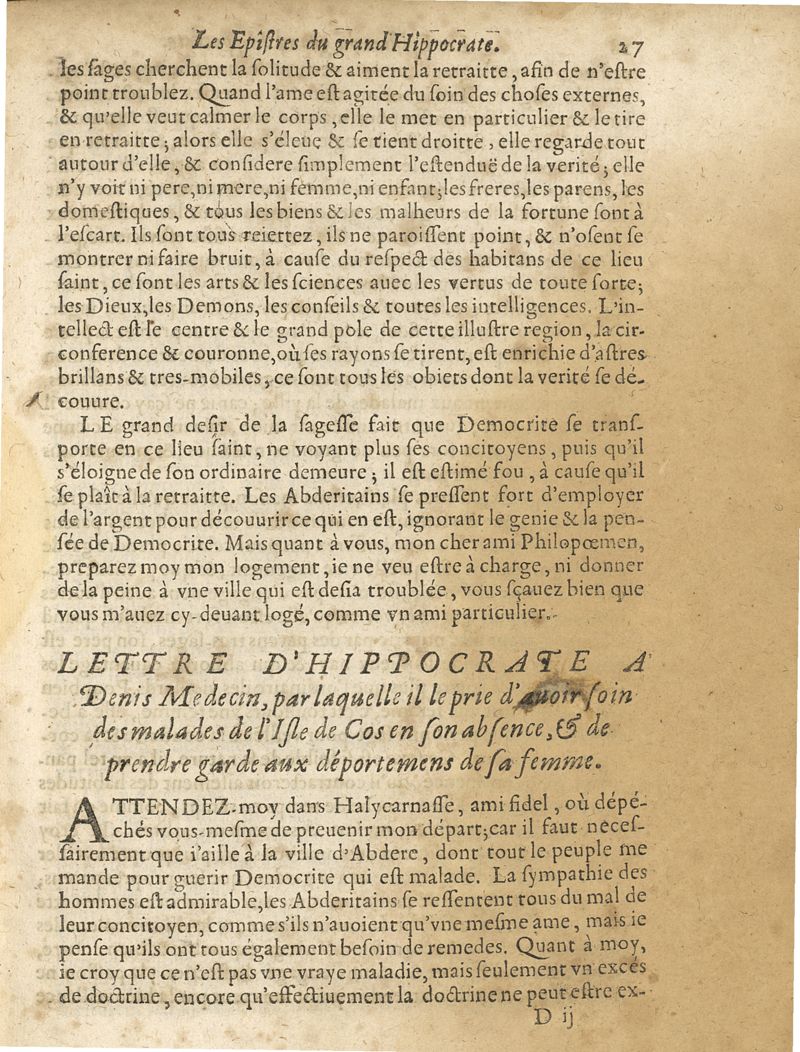 Les Epiſtres du grand Hippocrate. 27
les ſages cherchent la ſolitude & aiment la retraitte, afin de n'eſtre
point troublez. Quand l'ame eſt agitée du ſoin des choſes externes,
& qu'elle veut calmer le corps, elle le met en particulier & le tire
en retraitte; alors elle s'éleue & ſe tient droitte, elle regarde tout
autour d'elle, & conſidere ſimplement l'eſtenduë de la verité; elle
n'y voit ni pere, ni mere, ni femme, ni enfant; les freres, les parens, les
domeſtiques, & tous les biens & les malheurs de la fortune ſont à
l'eſcart. Ils ſont tous reiettez, ils ne paroiſſent point, & n'oſent ſe
montrer ni faire bruit, à cauſe du reſpect des habitans de ce lieu
ſaint, ce ſont les arts & les ſciences auec les vertus de toute ſorte;
les Dieux, les Demons, les conſeils & toutes les intelligences. L'in-
tellect eſt le centre & le grand pole de cette illuſtre region, la cir-
conference & couronne, où ſes rayons ſe tirent, eſt enrichie d'aſtres
brillans & tres-mobiles, ce ſont tous les obiets dont la verité ſe dé-
couure.
LE grand deſir de la ſageſſe fait que Democrite ſe tranſ-
porte en ce lieu ſaint, ne voyant plus ſes concitoyens, puis qu'il
s'éloigne de ſon ordinaire demeure; il eſt eſtimé fou, à cauſe qu'il
ſe plaît à la retraitte. Les Abderitains ſe preſſent fort d'employer
de l'argent pour découurir ce qui en eſt, ignorant le genie & la pen-
ſée de Democrite. Mais quant à vous, mon cher ami Philopœmen,
preparez moy mon logement, ie ne veu eſtre à charge, ni donner
de la peine à vne ville qui eſt deſia troublée, vous ſçauez bien que
vous m'auez cy-deuant logé, comme vn ami particulier.
LETTRE D'HIPPOCRATE A
Denis Medecin, par laquelle il le prie d'auoir ſoin
des malades de l'Iſle de Cos en ſon abſence, & de
prendre garde aux déportemens de ſa femme.
ATTENDEZ-moy dans Halycarnaſſe, ami fidel, où dépé-
chés vous-meſme de preuenir mon départ; car il faut neceſ-
ſairement que i'aille à la ville d'Abdere, dont tout le peuple me
mande pour guerir Democrite qui eſt malade. La ſympathie des
hommes eſt admirable, les Abderitains ſe reſſentent tous du mal de
leur concitoyen, comme s'ils n'auoient qu'vne meſme ame, mais ie
penſe qu'ils ont tous également beſoin de remedes. Quant à moy,
ie croy que ce n'eſt pas vne vraye maladie, mais ſeulement vn excés
de doctrine, encore qu'effectiuement la doctrine ne peut eſtre ex-
D ij